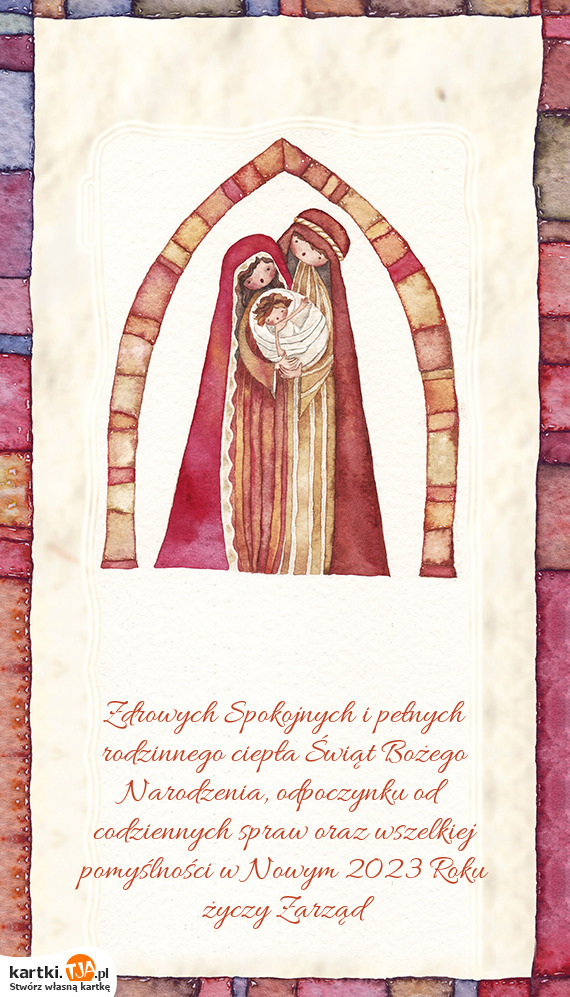 Zdrowych Spokojnych i pełnych
rodzinnego ciepła Świąt Bożego
Narodzenia, odpoczynku od
codziennych spraw oraz wszelkiej
pomyślności w Nowym 2023 Roku
życzy Zarząd
kartki.TJA.pl
Stwórz własną kartkę